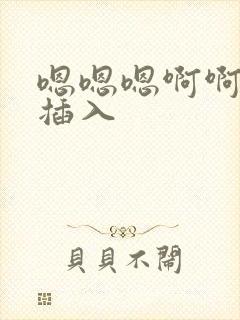 嗯嗯嗯啊啊
插入
貝貝不鬧